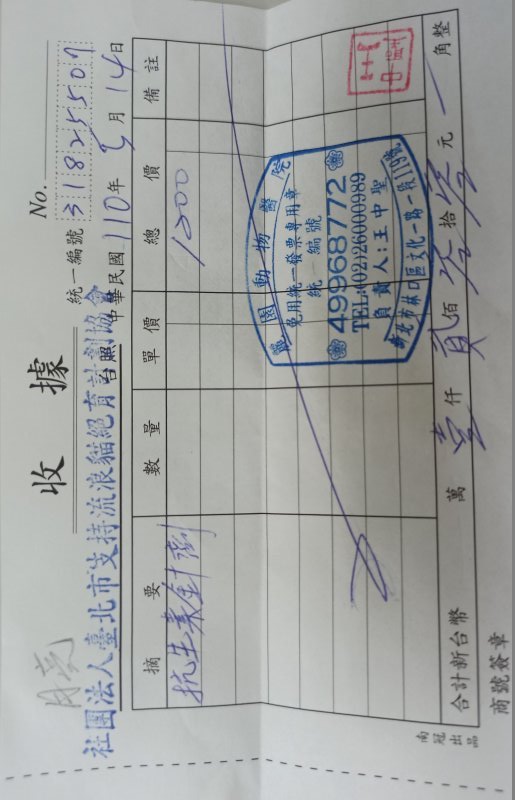 收據
No.
月亮
統一編號 31825507
社團法人臺北市支持流浪貓絕育計劃協會 台照
中華民國 110年 5月 14日
摘要 數量 單價 總價 備註
抗生素針劑 1200
合計新台幣 萬 壹仟 貳佰 零拾 零元 角整
商號簽章
南冠出品
動物醫院
免用統一發票專用章
統一編號
49968772
TEL:(02)26000989
負責人:王中聖
新北市林口區文化一路一段119號